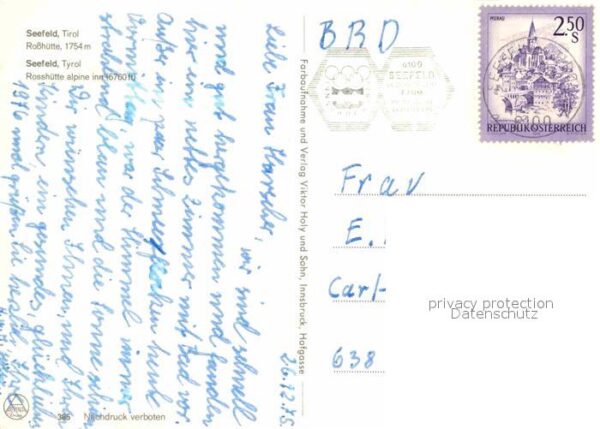 Seefeld, Tirol
Roßhütte, 1754 m
Seefeld, Tyrol
Rosshütte alpine inn
26.12.75
Liebe Frau
wir sind schnell
und gut angekommen und fanden
hier ein nettes Zimmer mit Bad vor.
Außer ein paar Schneeflecken
war der Himmel immer
strahlend blau und die Sonne schien
Wir wünschen Ihnen und Ihren
Kindern ein gesundes, glückliches
1976 und grüßen Sie
Farbaufnahme und Verlag Viktor Holy und Sohn, Innsbruck, Hofgasse
385 Nachdruck verboten
BRD
6100
SEEFELD
2.50 S
MURAU
REPUBLIK ÖSTERREICH
6100
Frau
E.
Carl-
638
privacy protection
Datenschutz